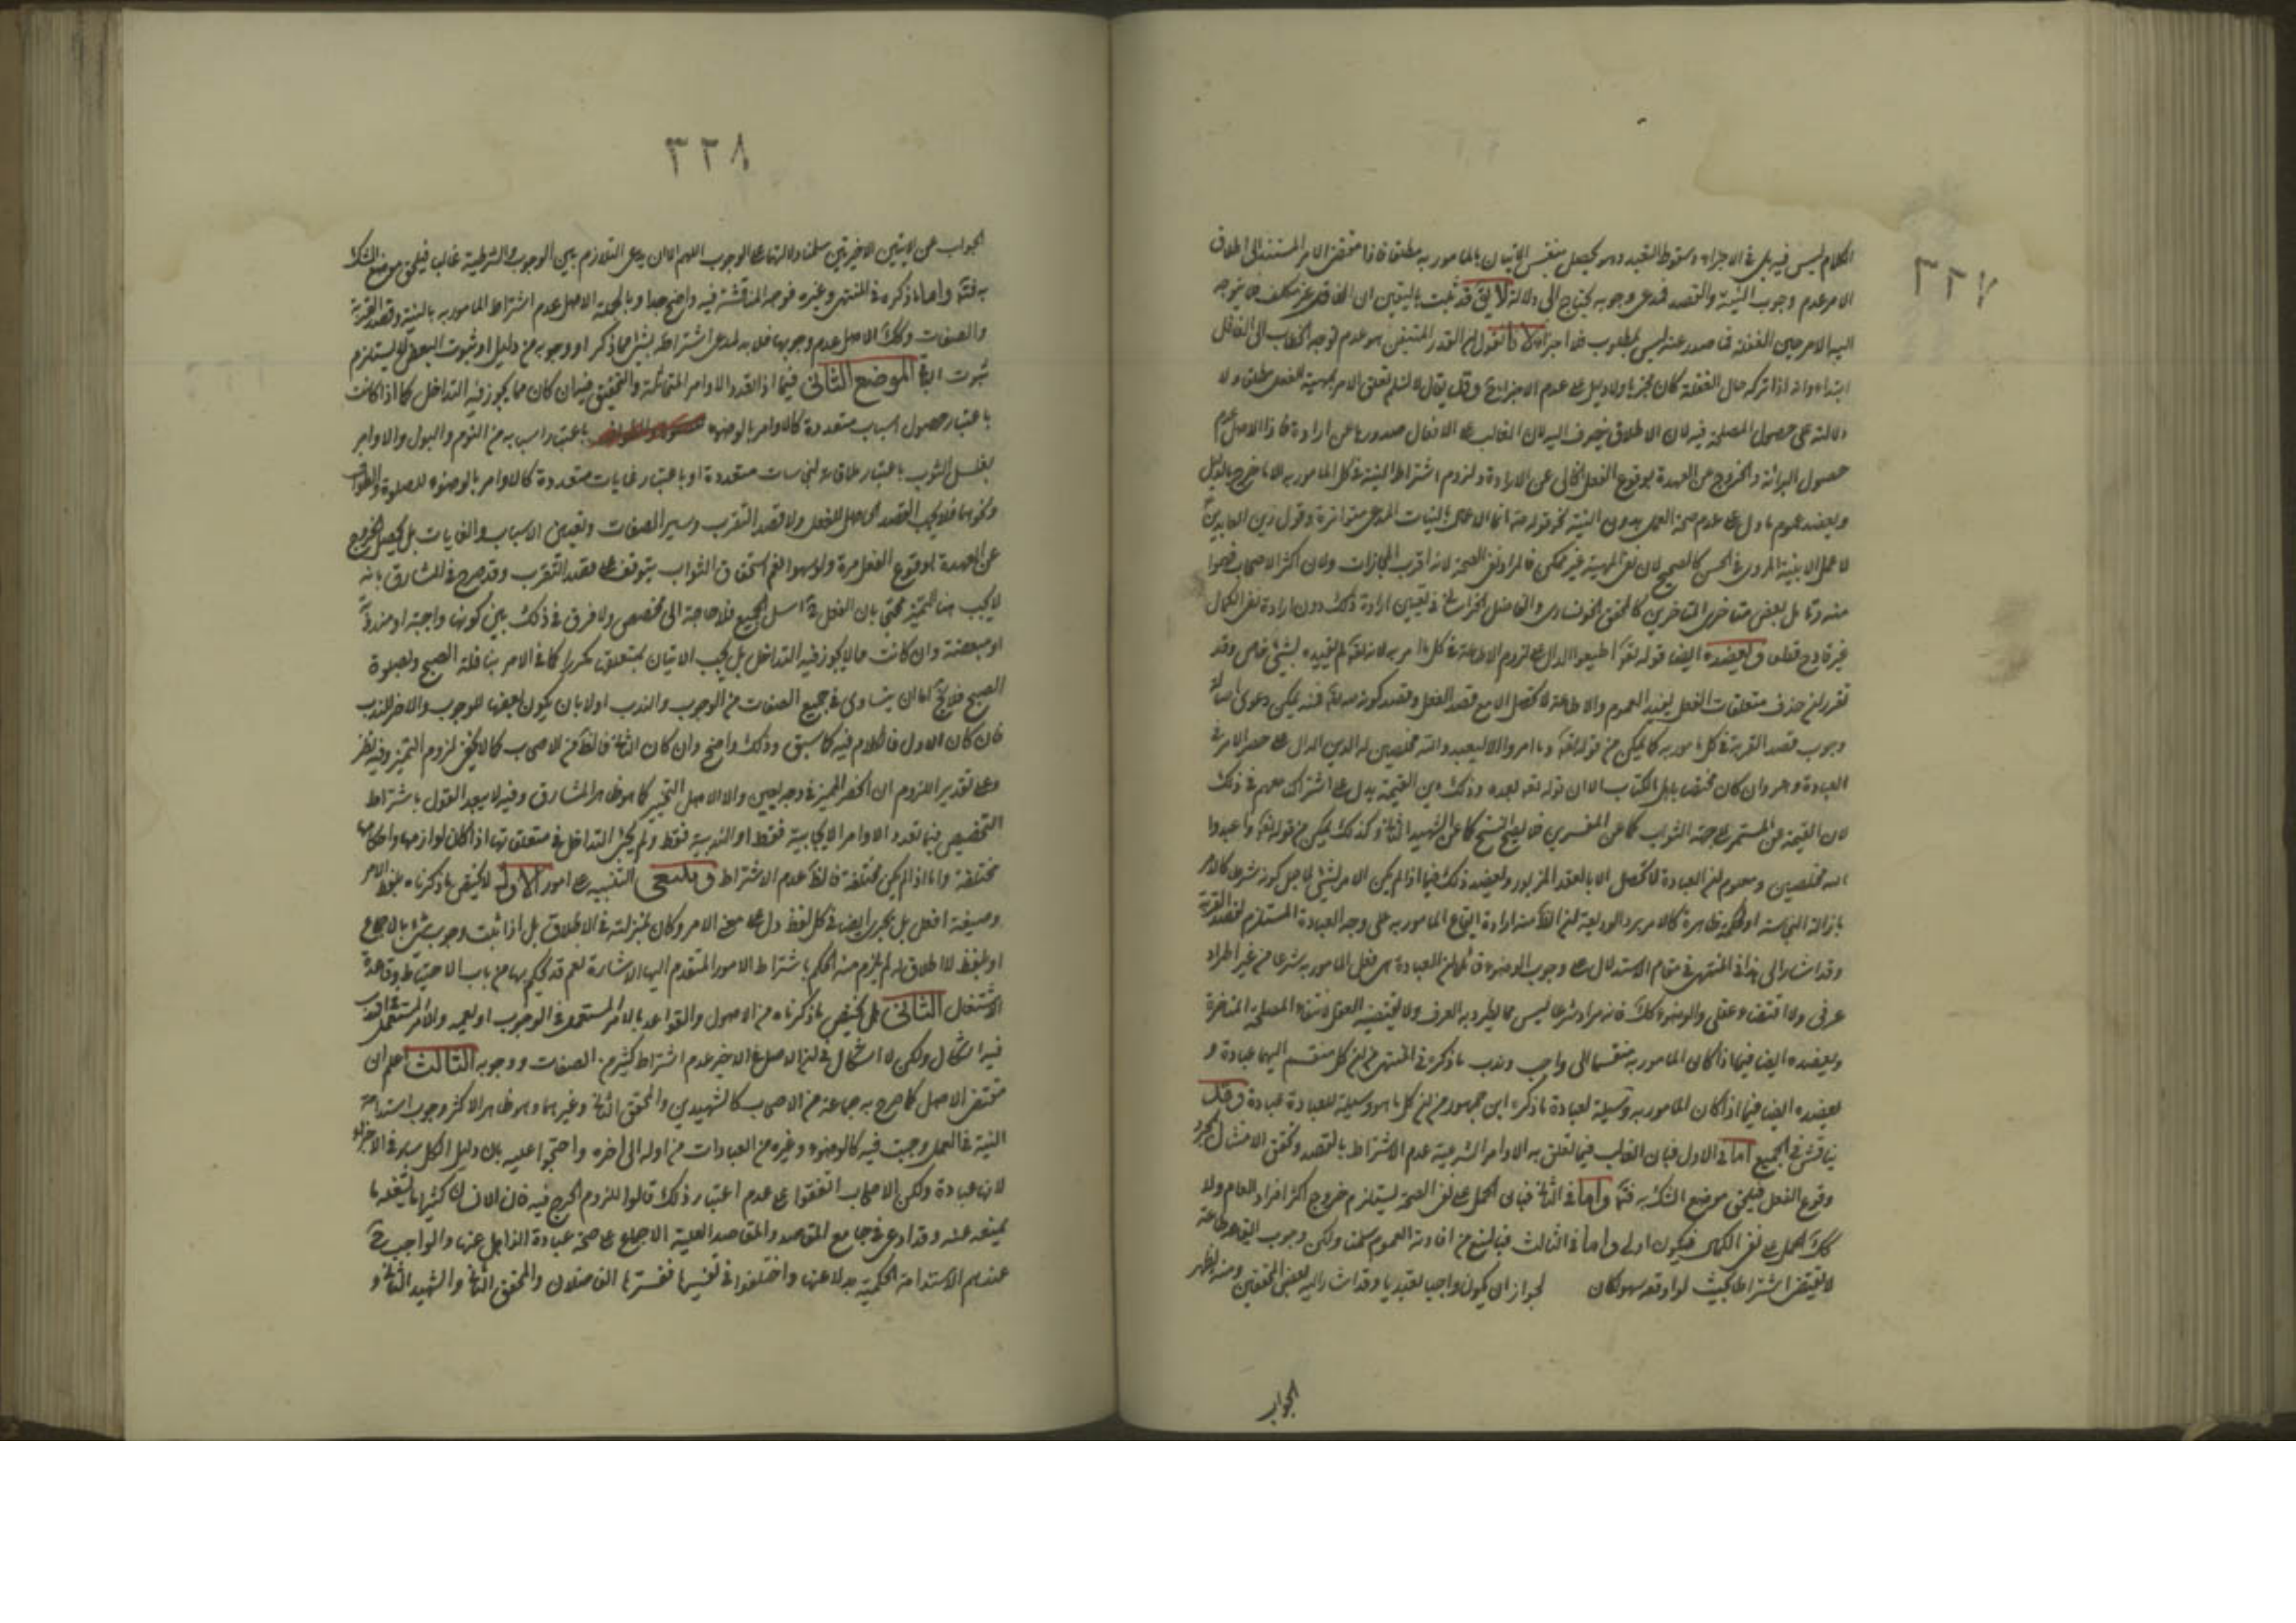 ٣٢٧
الكلام ليس فيه بل في الاجزاء وسقوط التعبد وهو يحصل بنفس الاتيان بالمامور به مطلقا فاذا مقتضى الامر المستند الى اطلاق
الامر عدم وجوب النية والقصد فمدعى وجوبه يحتاج الى دلالة لا يق قد ثبت باليقين ان الغافل غير مكلف فلا يتوجه
اليه الامر حين الغفلة فما صدر عنه ليس بمطلوب فلا اجزاء لانا نقول ان القدر المتيقن هو عدم توجه الخطاب الى الغافل
ابتداء وانه اذا تركه حال الغفلة كان مجزيا ولا دليل على عدم الاجزاء وقد يقال لا نسلم تعلق الامر بمهية الفعل مطلق ولا
دلالته على حصول المصلحة فيه لان الاطلاق ينصرف اليه لان الغالب على الافعال صدورها عن ارادة فاذا الاصل عدم
حصول البرائة والخروج عن العهدة بوقوع الفعل الخالى عن الارادة ولزوم اشتراط النية في كل المامور به الا ما خرج بالدليل
ويعضده عموم ما دل على عدم صحة العمل بدون النية نحو قوله انما الاعمال بالنيات المدعى متواترة وقول زين العابدين
لا عمل الا بنية المروى في الحسن كالصحيح لان نفى المهية غير ممكن فالمراد نفى الصحة لانه اقرب المجازات ولان اكثر الاصحاب فهموا
منه ذلك بل بعض متاخرى المتاخرين كالمحقق الخونسارى والفاضل الخراسانى في تعيين ارادة ذلك دون ارادة نفى الكمال
غير قادح قطعا ويعضده ايضا قوله تعالى اطيعوا الدال على لزوم الاطاعة في كل امر به لانه تعالى لم يقيده بشئ خاص وقد
تقرر ان حذف متعلقات الفعل يفيد العموم والاطاعة لا تحصل الا مع قصد الفعل وقصد كونه لله فمنه يمكن دعوى اصالة
وجوب قصد القربة في كل مامور به كما يمكن من قوله تعالى وما امروا الا ليعبدوا الله مخلصين له الدين الدال على حصر الامر في
العبادة وهو وان كان مختصا باهل الكتاب الا ان قوله تعالى بعده وذلك دين القيمة يدل على اشتراك معهم في ذلك
لان القيمة هى المستمرة على جهة الثواب كما عن المفسرين فلا يصح النسخ كما عن الشهيد الثاني وكذلك يمكن من قوله تعالى واعبدوا
الله مخلصين ومعلوم ان العبادة لا تحصل الا بالعقد المزبور ويعضد ذلك فيما اذا لم يكن الامر لشئ لاجل كونه شرطا كالامر
بازالة النجاسة او لحكمة ظاهرة كالامر برد الوديعة ان الظ منه ارادة ايقاع المامور به على وجه العبادة المستلزم لقصد القربة
وقد اشار الى هذا في المنتهى في مقام الاستدلال على وجوب الوضوء قائلا ان العبادة هى فعل المامور به شرعا من غير اطراد
عرفى ولا اقتضاء عقلى والوضوء كذلك فانه مراد شرعا ليس مما يطرد به العرف ولا يقتضيه العقل لانتفاء المصلحة المتاخرة
ويعضده ايضا فيما اذا كان المامور به منقسما الى واجب وندب ما ذكره في المنتهى من ان كل منقسم اليهما عبادة و
يعضده ايضا فيما اذا كان المامور به وسيلة لعبادة ما ذكره ابن جمهور من ان كل ما هو وسيلة للعبادة عبادة وقد
يناقش في الجميع اما في الاول فبان الغالب فيما تعلق به الاوامر الشرعية عدم الاشتراط بالقصد وتحقق الامتثال بمجرد
وقوع الفعل فيلحق موضع الشك به فتامل واما في الثاني فبان الحمل على نفى الصحة يستلزم خروج اكثر افراد العام ولا
كذلك الحمل على نفى الكمال فيكون اولى واما في الثالث فبالمنع من افادته العموم سلمنا ولكن وجوب الاطاعة
لا يقتضى اشتراطها بحيث لو اوقعه سهوا كان لجواز ان يكون واجبا تعبديا وقد اشار اليه بعض المحققين ومنه يظهر
الجواب
٣٢٨
الجواب عن الايتين الاخيرتين سلمنا دلالتها على الوجوب اللهم الا ان يدعى التلازم بين الوجوب والشرطية غالبا فيلحق موضع الشك
به فتامل واما ما ذكره في المنتهى وغيره فوجه المناقشة فيه واضح جدا وبالجملة الاصل عدم اشتراط المامور به بالنية وقصد القربة
والصفات وكذلك الاصل عدم وجوبها فلا بد لمدعى اشتراطه بشئ مما ذكر او وجوبه من دليل وثبوت البعض لا يستلزم
ثبوت الباقى الموضع الثانى فيما اذا تعدد الاوامر المتماثلة والتحقيق فيه ان كان مما يجوز فيه التداخل كما اذا كانت
باعتبار حصول اسباب متعددة كالاوامر بالوضوء باعتبار اسبابه من النوم والبول والاوامر
بغسل الثوب باعتبار ملاقاته لنجاسات متعددة او باعتبار غايات متعددة كالاوامر بالوضوء للصلوة والطواف
ونحوهما فلا يجب القصد الى اصل الفعل ولا قصد التقرب وسير الصفات وتعيين الاسباب والغايات بل يحصل الخروج
عن العهدة بوقوع الفعل مرة ولو سهوا نعم استحقاق الثواب يتوقف على قصد التقرب وقد صرح في المشارق بانه
لا يجب هنا التميز محتجا بان الفعل اسل الجميع فلا حاجة الى مخصص ولا فرق في ذلك بين كونها واجبة او مندوبة
او مبعضة وان كانت مما لا يجوز فيه التداخل بل يجب الاتيان بمتعلقها مكررا كما في الامر بنافلة الصبح وصلوة
الصبح فلا يخ اما ان يتساوى في جميع الصفات من الوجوب والندب او لا بان يكون بعضها للوجوب والاخر للندب
فان كان الاول فالكلام فيه كما سبق وذلك واضح وان كان الثانى فالظ من الاصحاب كما لا يخفى لزوم التميز وفيه نظر
وعلى تقدير اللزوم ان انحصر المميز في وجه تعين والا الاصل التخيير كما هو ظاهر المشارق وفيه لا يبعد القول باشتراط
التخصيص فيما تعدد الاوامر الايجابية فقط او الندبية فقط ولم يجز التداخل في متعلقاتها اذا كان لوازمها واحكامها
مختلفة واما اذا لم يكن مختلفة فالظ عدم الاشتراط وينبغى التنبيه على امور الاول لا يختص ما ذكرناه بلفظ الامر
وصيغة افعل بل يجرى ايضا في كل لفظ دل على معنى الامر وكان بمنزلته في الاطلاق بل اذا ثبت وجوب شئ بالاجماع
او بلفظ لا اطلاق له لم يلزم منه الحكم باشتراط الامور المتقدم اليها الاشارة نعم قد يحكم بها من باب الاحتياط وقاعدة
الاشتغال الثانى هل يختص ما ذكرناه من الاصول والقواعد بالامر المستعمل في الوجوب او يعمه والامر المستعمل في الندب
فيه اشكال ولكن لا اشكال في ان الاصل في الاخير عدم اشتراط شئ من الصفات ووجوبه الثالث اعلم ان
مقتضى الاصل كما صرح به جماعة من الاصحاب كالشهيدين والمحقق الثانى وغيرهما وهو ظاهر الاكثر وجوب استدامة
النية في العمل وجبت فيه كالوضوء وغيره من العبادات من اوله الى اخره واحتجوا عليه بان دليل الكل سار في الاجزاء
لانها عبادة ولكن الاصحاب اتفقوا على عدم اعتبار ذلك قالوا للزوم الحرج فيه فان الانسان كثيرا ما يشغله ما
يمنعه عنه وقد ادعى في جامع المقاصد والمقاصد العلية الاجماع على صحة عبادة الذاهل عنها والواجب ح
عندهم الاستدامة الحكمية بدلا عنها واختلفوا في تفسيرها ففسرها الفاضلان والمحقق الثانى والشهيد الثانى و